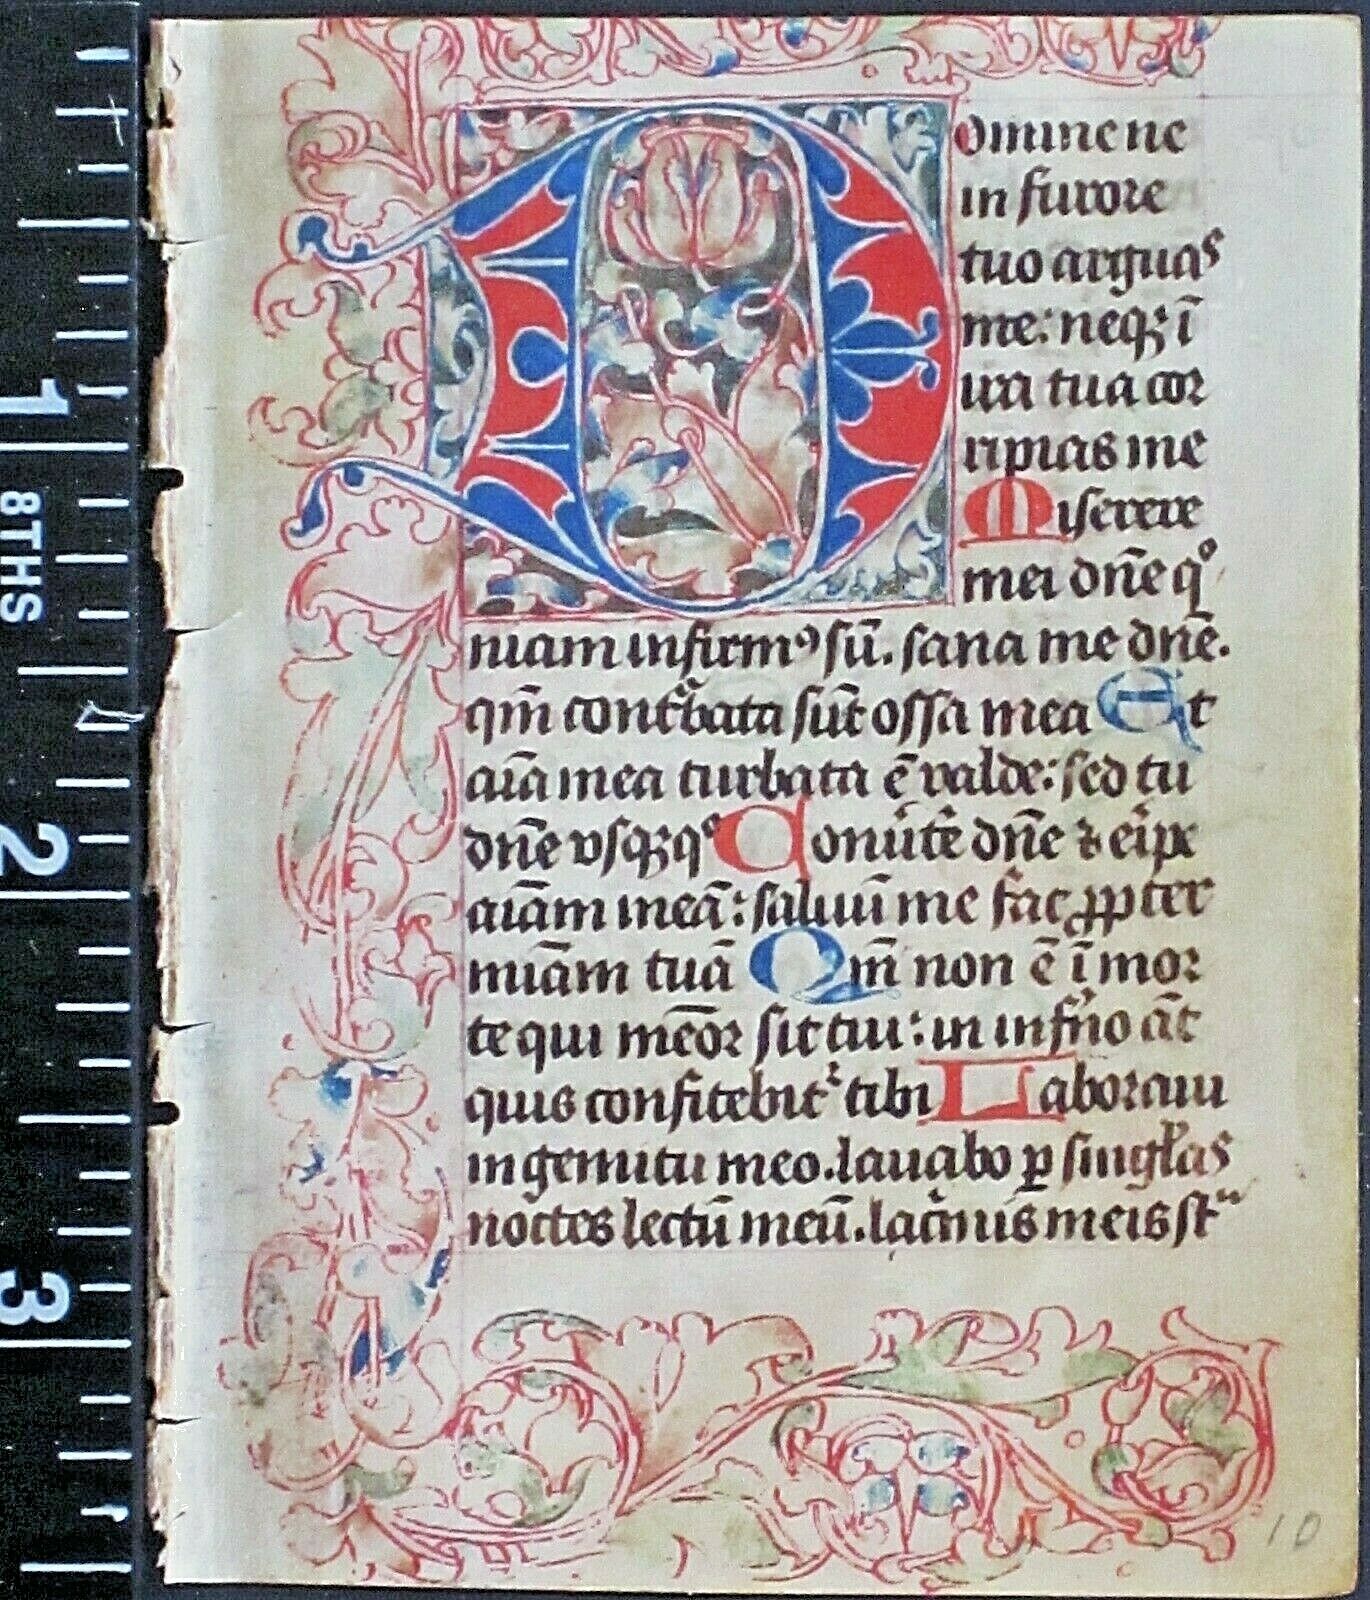 Domine ne
in furore
tuo arguas
me: neqꝫ ī
ira tua cor
ripias me
Miserere
mei dn̄e qº
niam infirmꝰ sū. sana me dn̄e.
qm̄ contᷓbata sūt ossa mea Et
aīa mea turbata ē valde: sed tu
dn̄e vsqꝫqº Conu̾te dn̄e ⁊ eipe
aīam meā: saluū me fac ꝓpter
mīam tuā Qm̄ non ē ī mor
te qui mēor sit tui: in inf̾no āt
quis confitebit᷑ tibi Laboraui
in gemitu meo. lauabo ꝑ singl̾as
noctes lectū meū. lac̾mis meis st
10
1
8THS
2
3